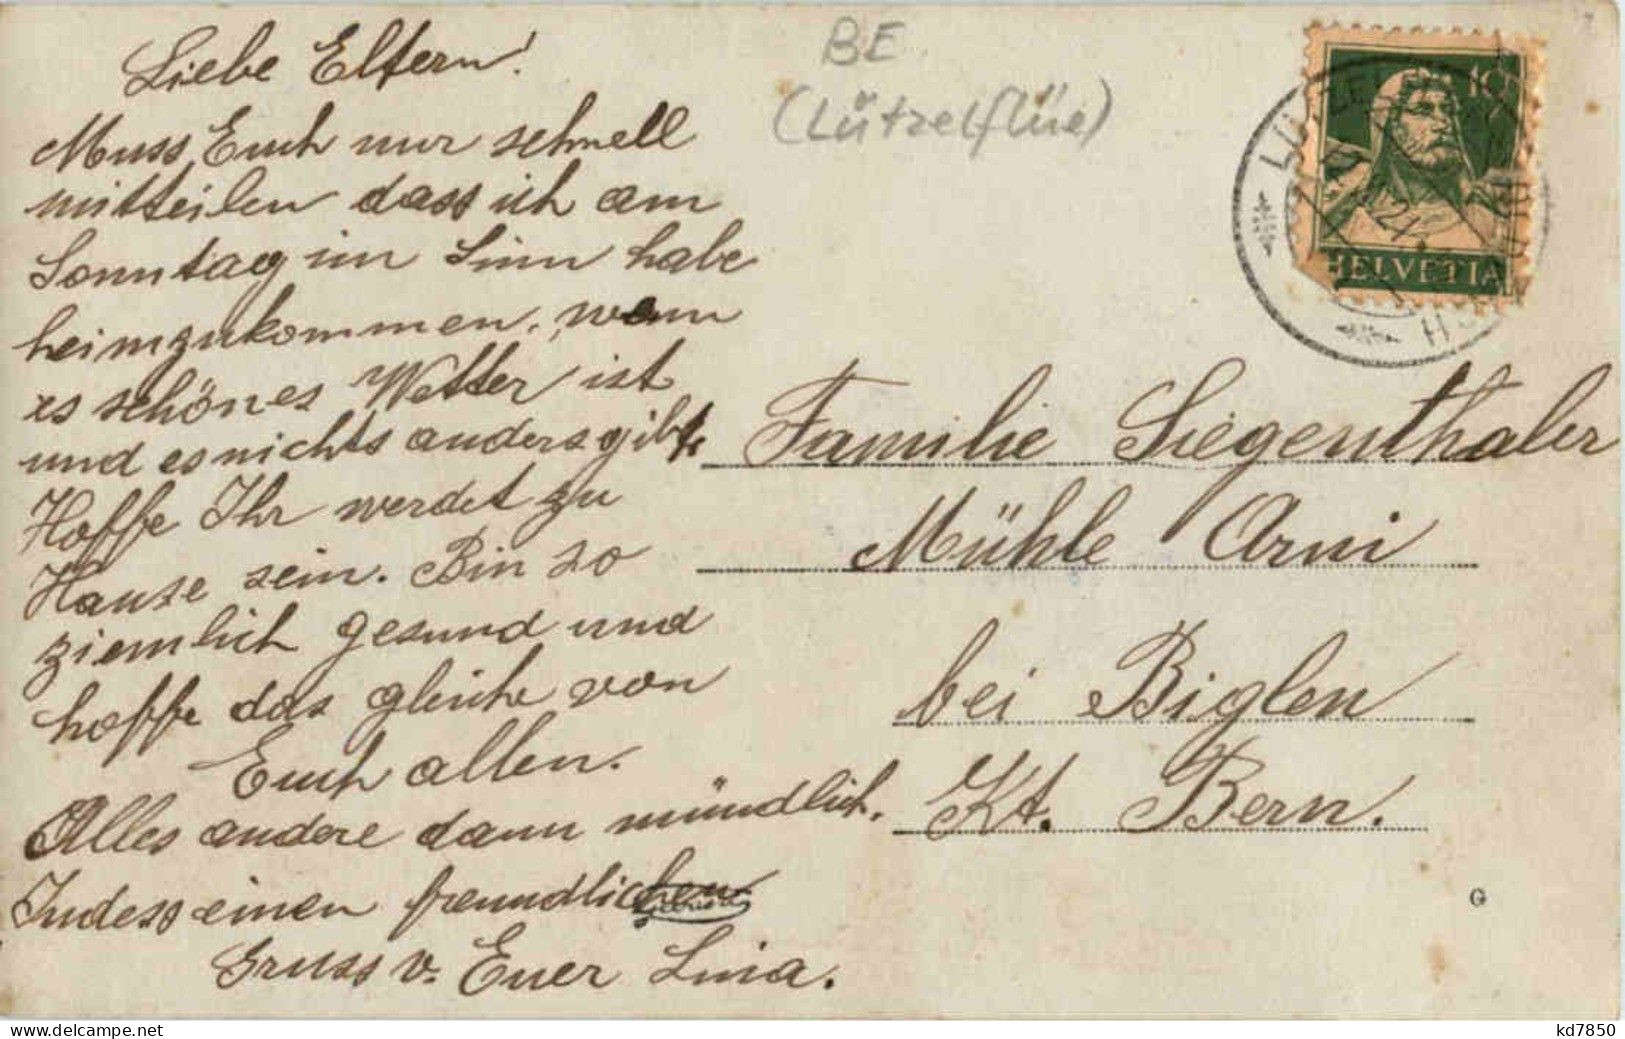 Liebe Eltern!
Muss Euch nur schnell
mitteilen dass ich am
Sonntag im Sinn habe
heimzukommen, wenn
es schönes Wetter ist
und es nichts anders gibt.
Hoffe Ihr werdet zu
Hause sein. Bin so
ziemlich gesund und
hoffe das gleiche von
Euch allen.
Alles andere dann mündlich.
Indess einen freundlichen
Gruss v. Euer Lina.
BE
(Lützelflüe)
10
HELVETIA
Familie Siegenthaler
Mühle Arni
bei Biglen
Kt. Bern.
G
kd7850